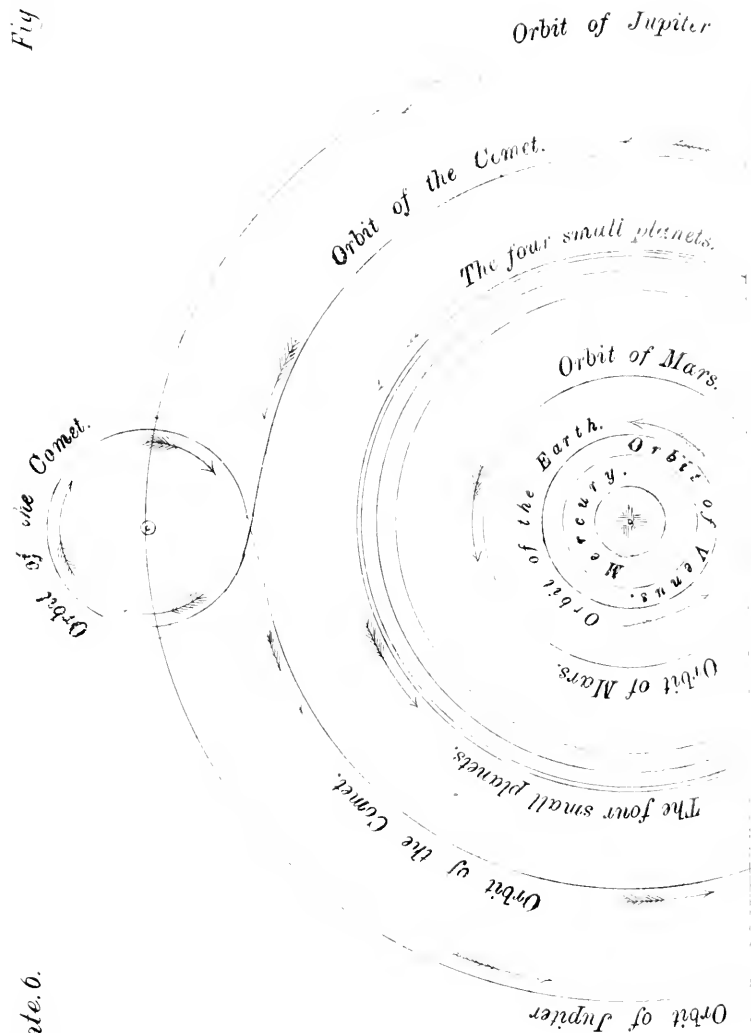 Fig
Orbit of Jupiter
Orbit of the Comet.
The four small planets.
Orbit of Mars.
Orbit of the Comet.
Orbit of the Earth.
Orbit of Venus.
Mercury.
Orbit of Mars.
The four small planets.
Orbit of the Comet.
Orbit of Jupiter
te.6.